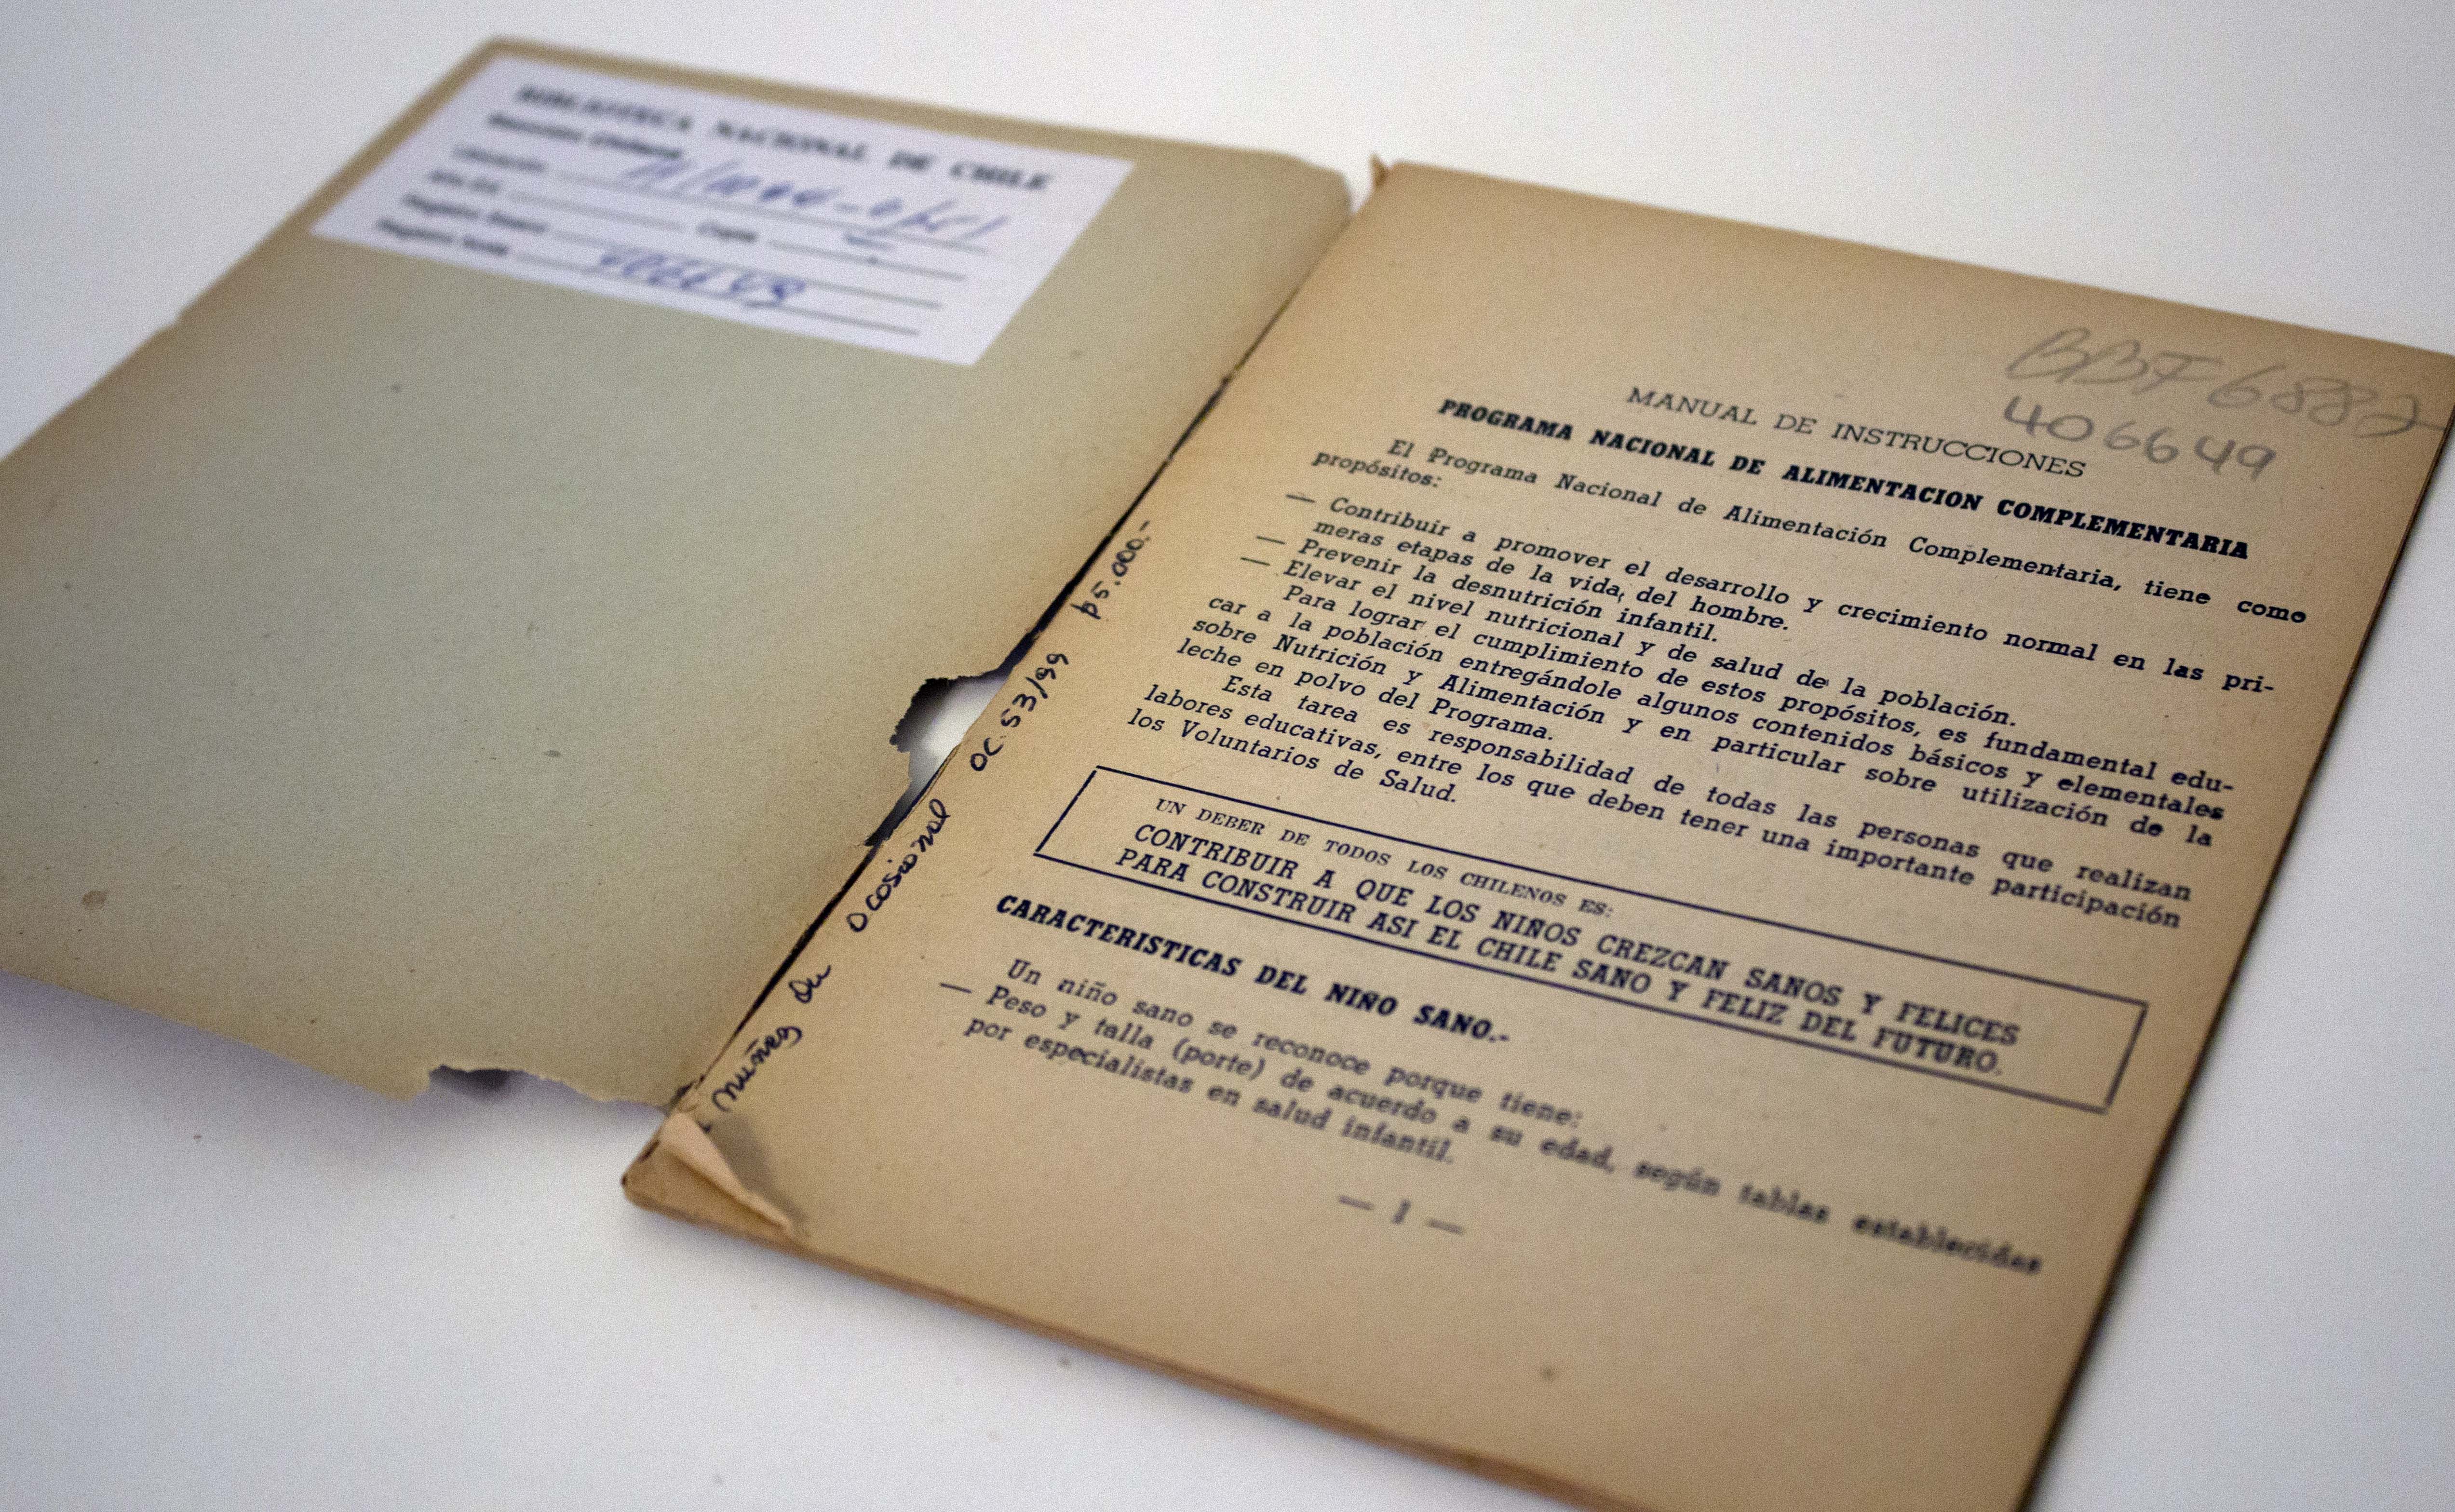 BIBLIOTECA NACIONAL DE CHILE
Sección Chilena
Ubicación
Año Ed. Copia
Registro Seaco
Registro Notis 406649
BBF 6882
406649
MANUAL DE INSTRUCCIONES
PROGRAMA NACIONAL DE ALIMENTACION COMPLEMENTARIA
El Programa Nacional de Alimentación Complementaria, tiene como
propósitos:
— Contribuir a promover el desarrollo y crecimiento normal en las pri-
meras etapas de la vida, del hombre.
— Prevenir la desnutrición infantil.
— Elevar el nivel nutricional y de salud de la población.
Para lograr el cumplimiento de estos propósitos, es fundamental edu-
car a la población entregándole algunos contenidos básicos y elementales
sobre Nutrición y Alimentación y en particular sobre utilización de la
leche en polvo del Programa.
Esta tarea es responsabilidad de todas las personas que realizan
labores educativas, entre los que deben tener una importante participación
los Voluntarios de Salud.
UN DEBER DE TODOS LOS CHILENOS ES:
CONTRIBUIR A QUE LOS NIÑOS CREZCAN SANOS Y FELICES
PARA CONSTRUIR ASI EL CHILE SANO Y FELIZ DEL FUTURO.
CARACTERISTICAS DEL NIÑO SANO.-
Un niño sano se reconoce porque tiene:
— Peso y talla (porte) de acuerdo a su edad, según tablas establecidas
por especialistas en salud infantil.
— 1 —
Núñez Ocasional OC.53/99 p5.000.-